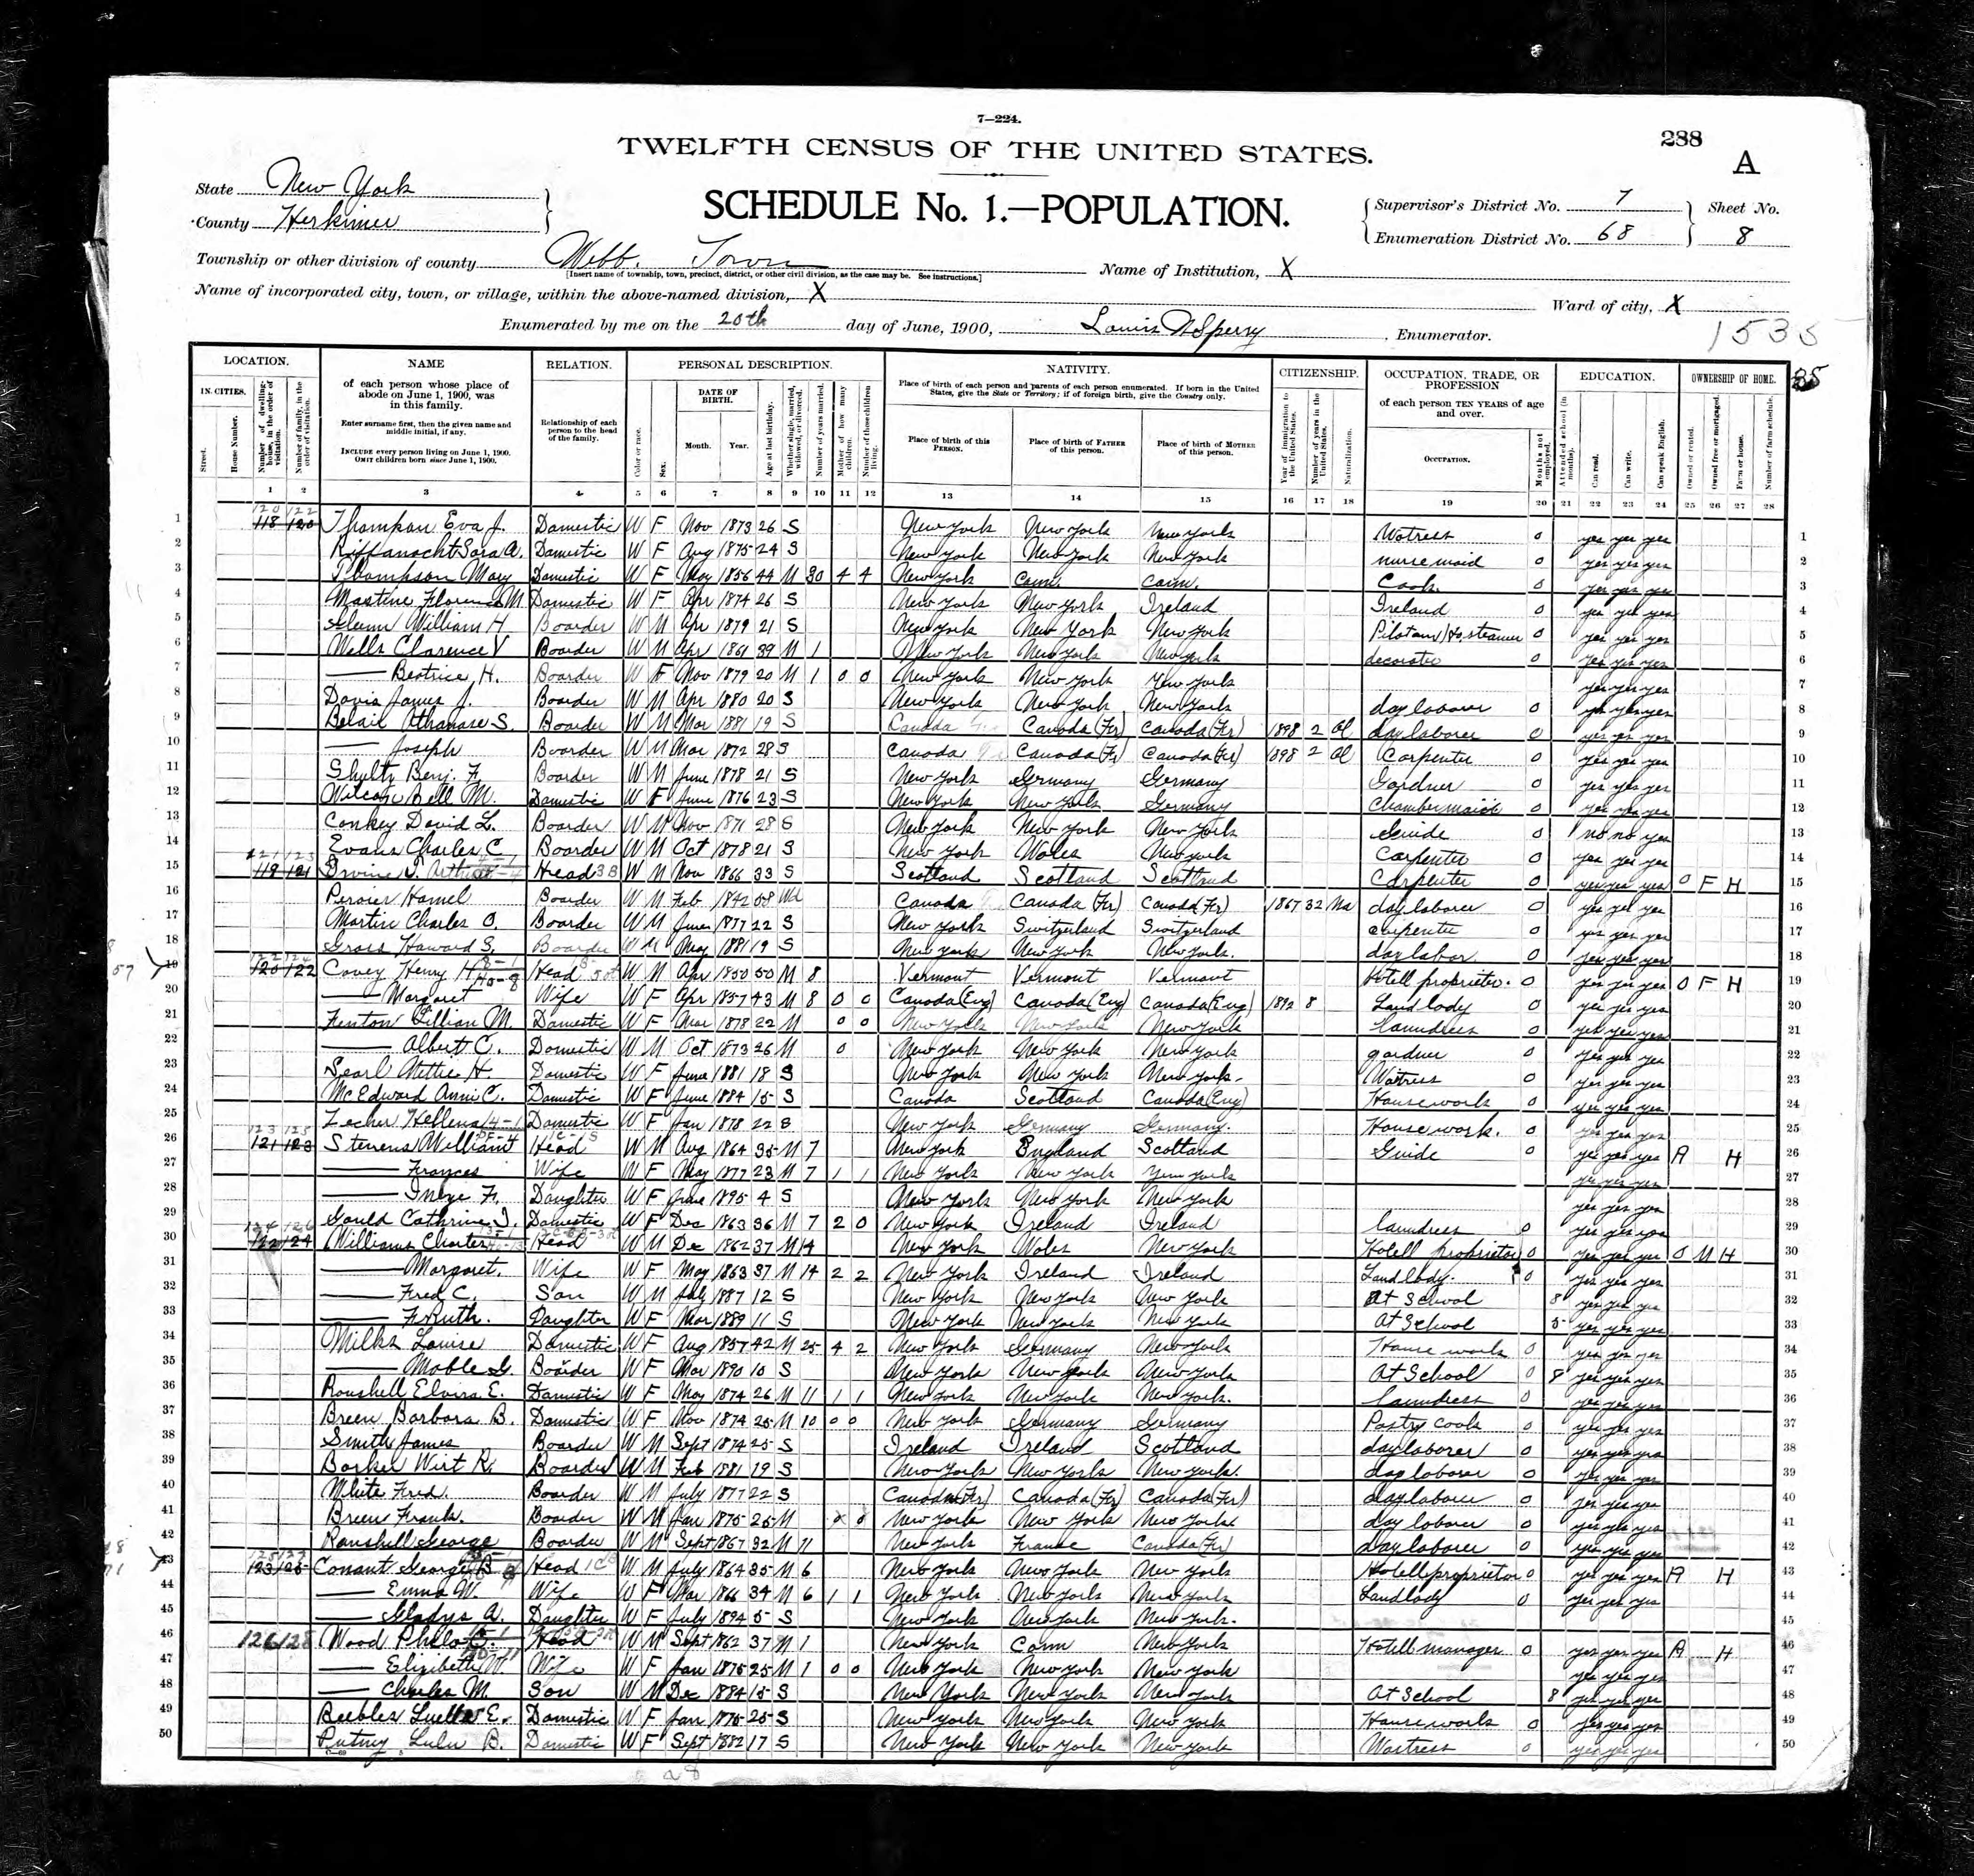 7—224.
TWELFTH CENSUS OF THE UNITED STATES.
288
A
State New York
County Herkimer
SCHEDULE No. 1.—POPULATION.
Supervisor's District No. 7
Enumeration District No. 68
Sheet No.
8
Township or other division of county Webb Town
[Insert name of township, town, precinct, district, or other civil division, as the case may be. See instructions.]
Name of Institution, X
Name of incorporated city, town, or village, within the above-named division, X
Ward of city, X
Enumerated by me on the 20th day of June, 1900, Louis Sperry, Enumerator.
1535
LOCATION. NAME RELATION. PERSONAL DESCRIPTION. NATIVITY. CITIZENSHIP. OCCUPATION, TRADE, OR PROFESSION EDUCATION. OWNERSHIP OF HOME.
IN CITIES.
Street.
House Number.
Number of dwelling-house, in the order of visitation.
Number of family, in the order of visitation.
of each person whose place of abode on June 1, 1900, was in this family.
Enter surname first, then the given name and middle initial, if any.
INCLUDE every person living on June 1, 1900.
OMIT children born since June 1, 1900.
Relationship of each person to the head of the family.
Color or race.
Sex.
DATE OF BIRTH.
Month. Year.
Age at last birthday.
Whether single, married, widowed, or divorced.
Number of years married.
Mother of how many children.
Number of these children living.
Place of birth of each person and parents of each person enumerated. If born in the United States, give the State or Territory; if of foreign birth, give the Country only.
Place of birth of this PERSON.
Place of birth of FATHER of this person.
Place of birth of MOTHER of this person.
Year of immigration to the United States.
Number of years in the United States.
Naturalization.
of each person TEN YEARS of age and over.
OCCUPATION.
Months not employed.
Attended school (in months).
Can read.
Can write.
Can speak English.
Owned or rented.
Owned free or mortgaged.
Farm or house.
Number of farm schedule.
1 2 3 4 5 6 7 8 9 10 11 12 13 14 15 16 17 18 19 20 21 22 23 24 25 26 27 28
1 118 120 Thompson Eva J. Domestic W F Nov 1873 26 S New York New York New York Watress 0 yes yes yes 1
2 Sara A. Domestic W F Aug 1875 24 S New York New York New York nurse maid 0 yes yes yes 2
3 Thompson May Domestic W F May 1856 44 M 30 4 4 New York Conn. Conn. Cook 0 yes yes yes 3
4 Mastine Florence M Domestic W F Apr 1874 26 S New York New York Ireland Ireland 0 yes yes yes 4
5 William H Boarder W M Apr 1879 21 S New York New York New York 0 yes yes yes 5
6 Wells Clarence V Boarder W M Apr 1861 39 M 1 New York New York New York decorator 0 yes yes yes 6
7 —— Beatrice H. Boarder W F Nov 1879 20 M 1 0 0 New York New York New York yes yes yes 7
8 Davis James J. Boarder W M Apr 1880 20 S New York New York New York day laborer 0 yes yes yes 8
9 Belair Athanase S. Boarder W M Mar 1881 19 S Canada Canada (Fr) Canada (Fr) 1898 2 Al day laborer 0 yes yes yes 9
10 —— Joseph Boarder W M Mar 1872 28 S Canada Canada (Fr) Canada (Fr) 1898 2 Al Carpenter 0 yes yes yes 10
11 Shultz Benj. F. Boarder W M June 1878 21 S New York Germany Germany Gardner 0 yes yes yes 11
12 Wilcox Bell M. Domestic W F June 1876 23 S New York New York Germany Chambermaid 0 yes yes yes 12
13 Conkey David L. Boarder W M Nov 1871 28 S New York New York New York Guide 0 no no yes 13
14 Evans Charles C Boarder W M Oct 1878 21 S New York Wales New York Carpenter 0 yes yes yes 14
15 119 121 Irvine J. Arthur Head W M Nov 1866 33 S Scotland Scotland Scotland Carpenter 0 yes yes yes O F H 15
16 Hamel Boarder W M Feb 1842 58 Wd Canada Canada (Fr) Canada (Fr) 1867 32 Na day laborer 0 yes yes yes 16
17 Martin Charles O. Boarder W M June 1877 22 S New York Switzerland Switzerland carpenter 0 yes yes yes 17
18 Gross Howard S. Boarder W M May 1881 19 S New York New York New York. day labor 0 yes yes yes 18
19 120 122 Covey Henry H Head W M Apr 1850 50 M 8 Vermont Vermont Vermont Hotell proprietor. 0 yes yes yes O F H 19
20 —— Margaret Wife W F Apr 1857 43 M 8 0 0 Canada (Eng) Canada (Eng) Canada (Eng) 1892 8 Land lady 0 yes yes yes 20
21 Fenton Lillian M. Domestic W F Mar 1878 22 M 0 0 New York New York New York Laundress 0 yes yes yes 21
22 —— Albert C. Domestic W M Oct 1873 26 M 0 New York New York New York gardner 0 yes yes yes 22
23 Searl Nettie H Domestic W F June 1881 18 S New York New York New York. Waitress 0 yes yes yes 23
24 McEdward Anni C. Domestic W F June 1884 15 S Canada Scotland Canada (Eng) House work 0 yes yes yes 24
25 Zecher Hellena Domestic W F Jan 1878 22 S New York Germany Germany. House work. 0 yes yes yes 25
26 121 123 Stevens William Head W M Aug 1864 35 M 7 New York England Scotland Guide 0 yes yes yes R H 26
27 —— Frances Wife W F May 1877 23 M 7 1 1 New York New York New York yes yes yes 27
28 —— F. Daughter W F June 1895 4 S New York New York New York yes yes yes 28
29 Gould Cathrine I. Domestic W F Dec 1863 36 M 7 2 0 New York Ireland Ireland laundress 0 yes yes yes 29
30 122 124 Williams Charles Head W M Dec 1862 37 M 14 New York Wales New York Hotell proprietor 0 yes yes yes O M H 30
31 —— Margaret. Wife W F May 1863 37 M 14 2 2 New York Ireland Ireland Land lady. 0 yes yes yes 31
32 —— Fred C. Son W M July 1887 12 S New York New York New York At School 8 yes yes yes 32
33 —— F. Ruth. Daughter W F Mar 1889 11 S New York New York New York At School 5 yes yes yes 33
34 Milks Louise Domestic W F Aug 1857 42 M 25 4 2 New York Germany New York House work 0 yes yes yes 34
35 —— Mable G. Boarder W F Mar 1890 10 S New York New York New York At School 0 8 yes yes yes 35
36 Roushell Elvira E. Domestic W F May 1874 26 M 11 1 1 New York New York New York. laundress 0 yes yes yes 36
37 Breen Barbara B. Domestic W F Nov 1874 25 M 10 0 0 New York Germany Germany Pastry cook 0 yes yes yes 37
38 Smith James Boarder W M Sept 1874 25 S Ireland Ireland Scotland day laborer 0 yes yes yes 38
39 Barker Wirt R. Boarder W M Feb 1881 19 S New York New York New York. day laborer 0 yes yes yes 39
40 White Fred. Boarder W M July 1877 22 S Canada (Fr) Canada (Fr) Canada (Fr) day laborer 0 yes yes yes 40
41 Breen Frank. Boarder W M Jan 1875 25 M New York New York New York day laborer 0 yes yes yes 41
42 Roushell George Boarder W M Sept 1867 32 M 11 New York France Canada (Fr) day laborer 0 yes yes yes 42
43 123 125 Conant George B Head W M July 1864 35 M 6 New York New York New York Hotell proprietor 0 yes yes yes R H 43
44 —— Emma M. Wife W F Mar 1866 34 M 6 1 1 New York New York New York Landlady 0 yes yes yes 44
45 —— Gladys A. Daughter W F July 1894 5 S New York New York New York. 45
46 126 128 Wood Philo Head W M Sept 1862 37 M 1 New York Conn New York Hotell manager 0 yes yes yes R H 46
47 —— Elizibeth W. Wife W F Jan 1875 25 M 1 0 0 New York New York New York yes yes yes 47
48 —— Charles M. Son W M Dec 1884 15 S New York New York New York At School 8 yes yes yes 48
49 Beebles Luella E. Domestic W F Jan 1875 25 S New York New York New York House work 0 yes yes yes 49
50 Putney Lulu B. Domestic W F Sept 1882 17 S New York New York New York Waitress 0 yes yes yes 50